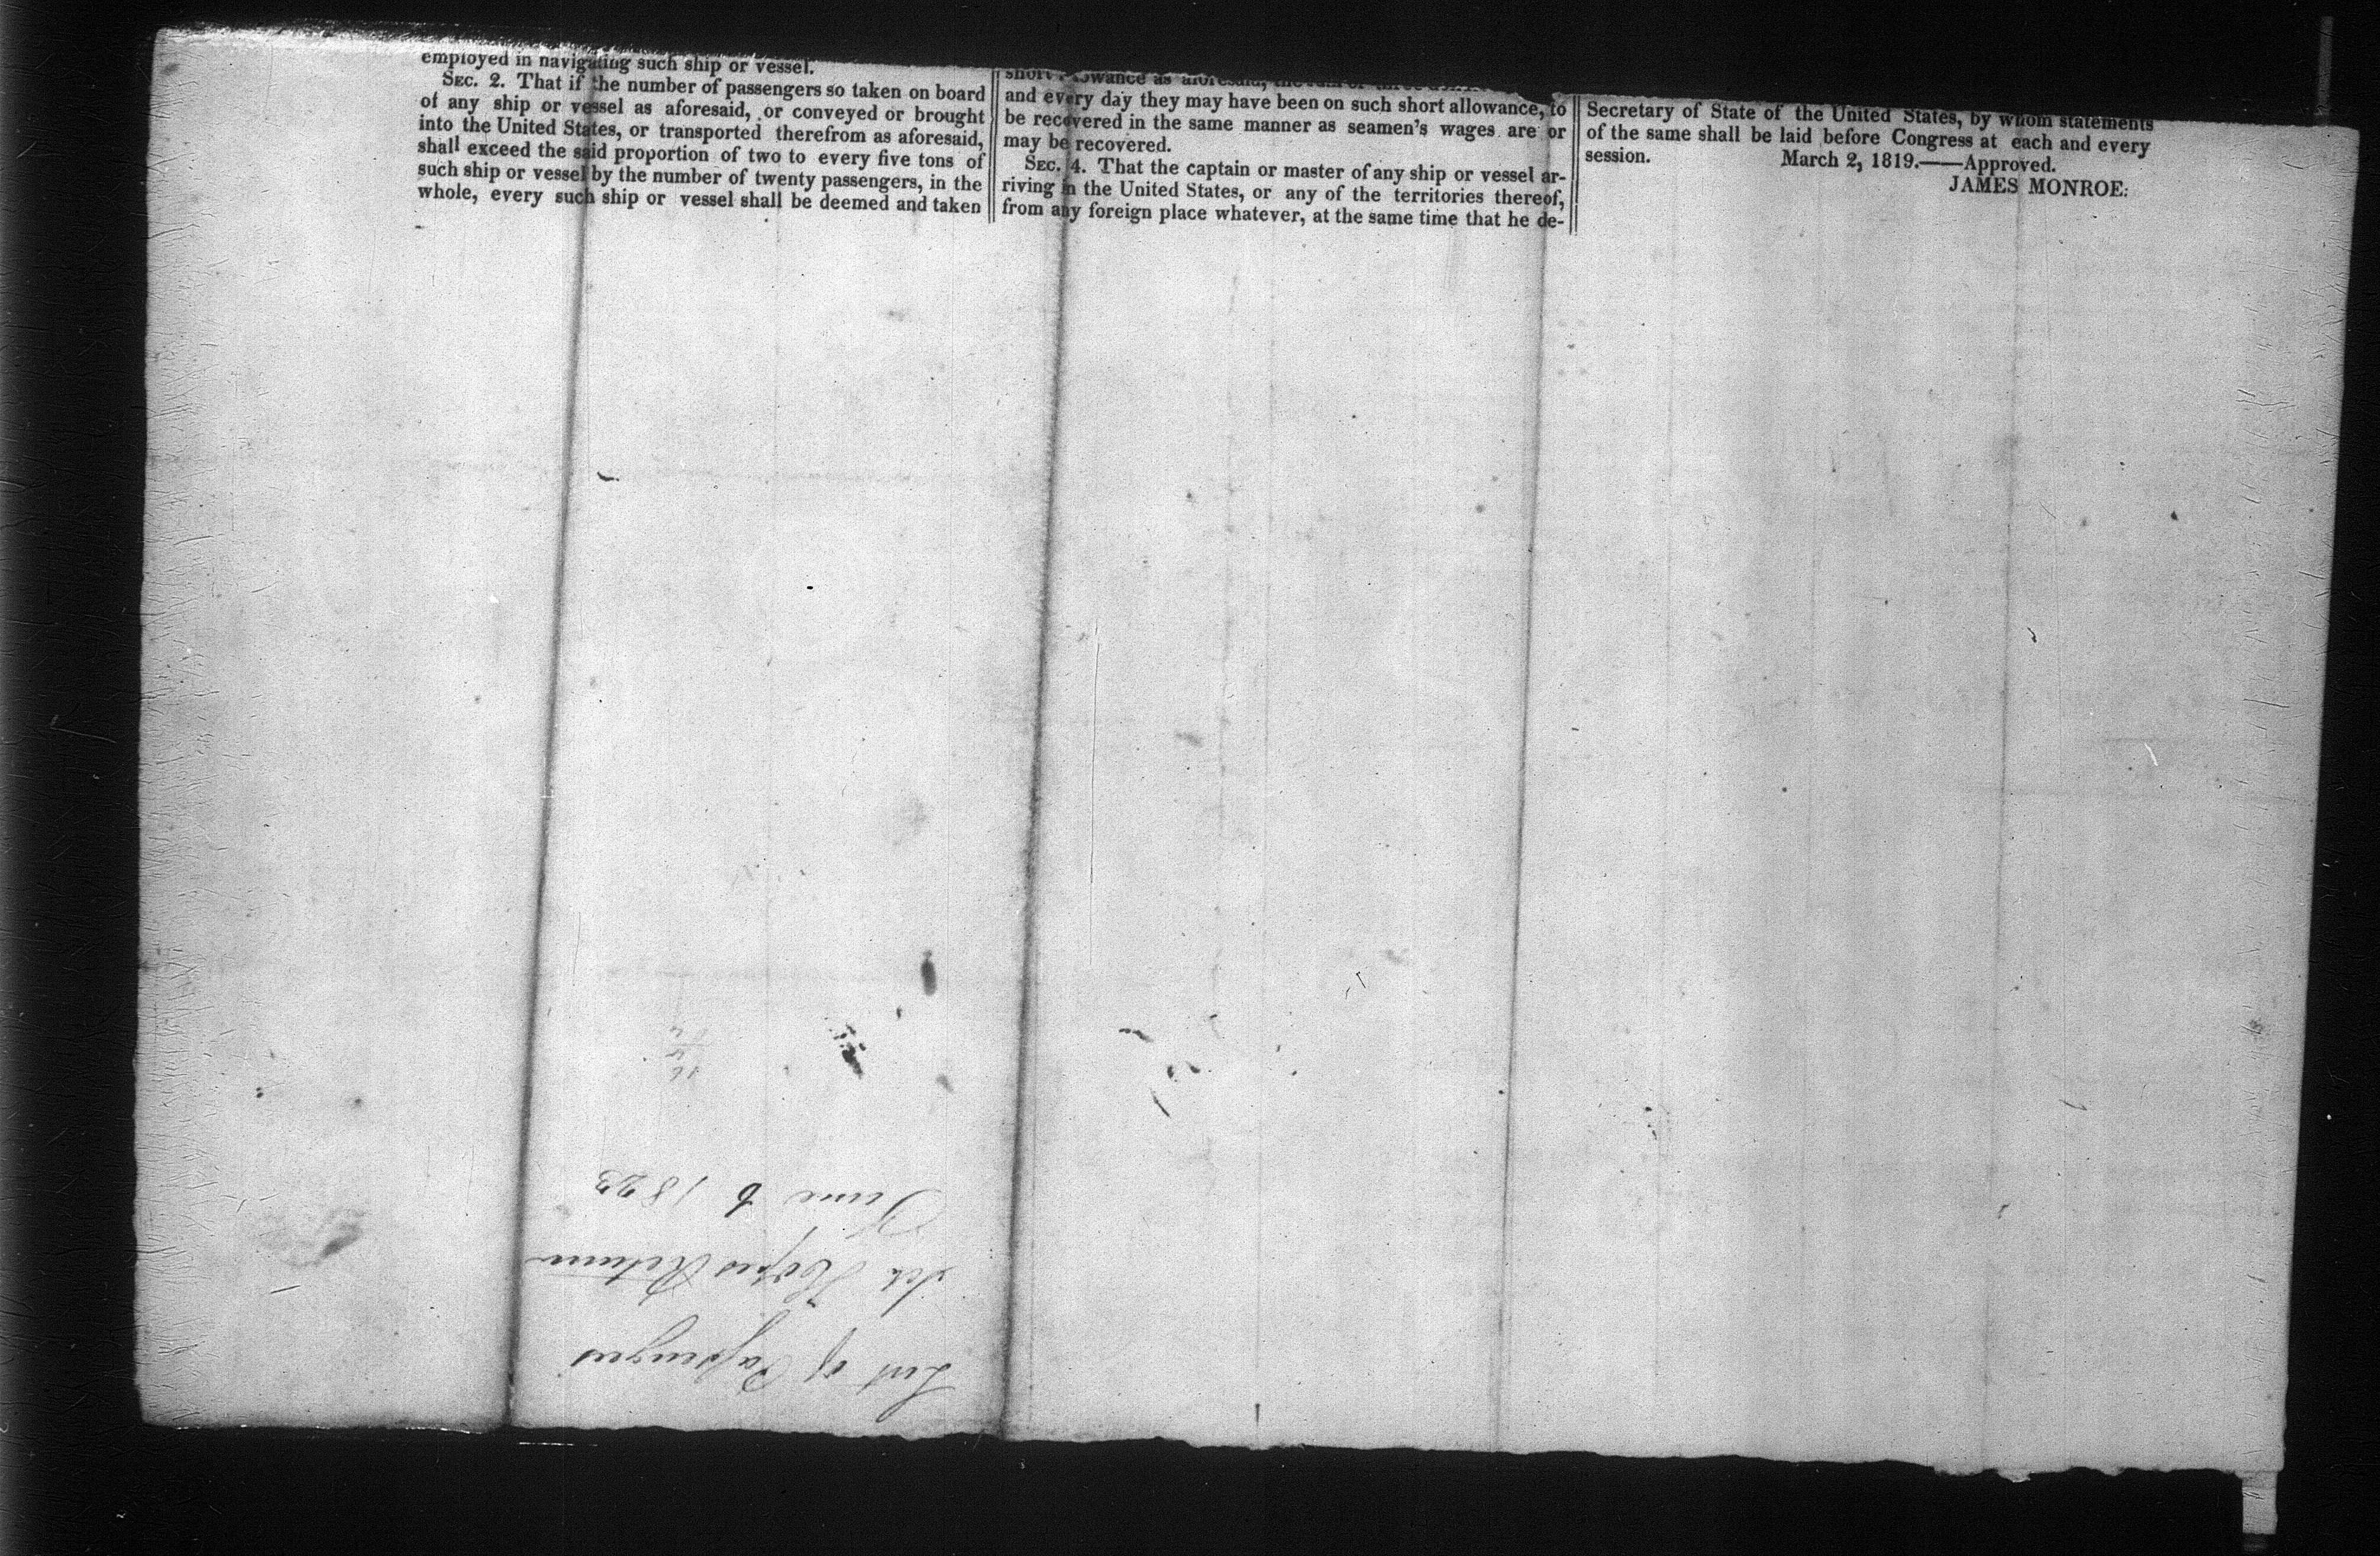 employed in navigating such ship or vessel.
SEC. 2. That if the number of passengers so taken on board
of any ship or vessel as aforesaid, or conveyed or brought
into the United States, or transported therefrom as aforesaid,
shall exceed the said proportion of two to every five tons of
such ship or vessel by the number of twenty passengers, in the
whole, every such ship or vessel shall be deemed and taken
short allowance as aforesaid, the sum of three
and every day they may have been on such short allowance, to
be recovered in the same manner as seamen's wages are or
may be recovered.
SEC. 4. That the captain or master of any ship or vessel ar-
riving in the United States, or any of the territories thereof,
from any foreign place whatever, at the same time that he de-
Secretary of State of the United States, by whom statements
of the same shall be laid before Congress at each and every
session. March 2, 1819.——Approved.
JAMES MONROE.
List of Passengers
Sch Hopes Return
June 6 1823